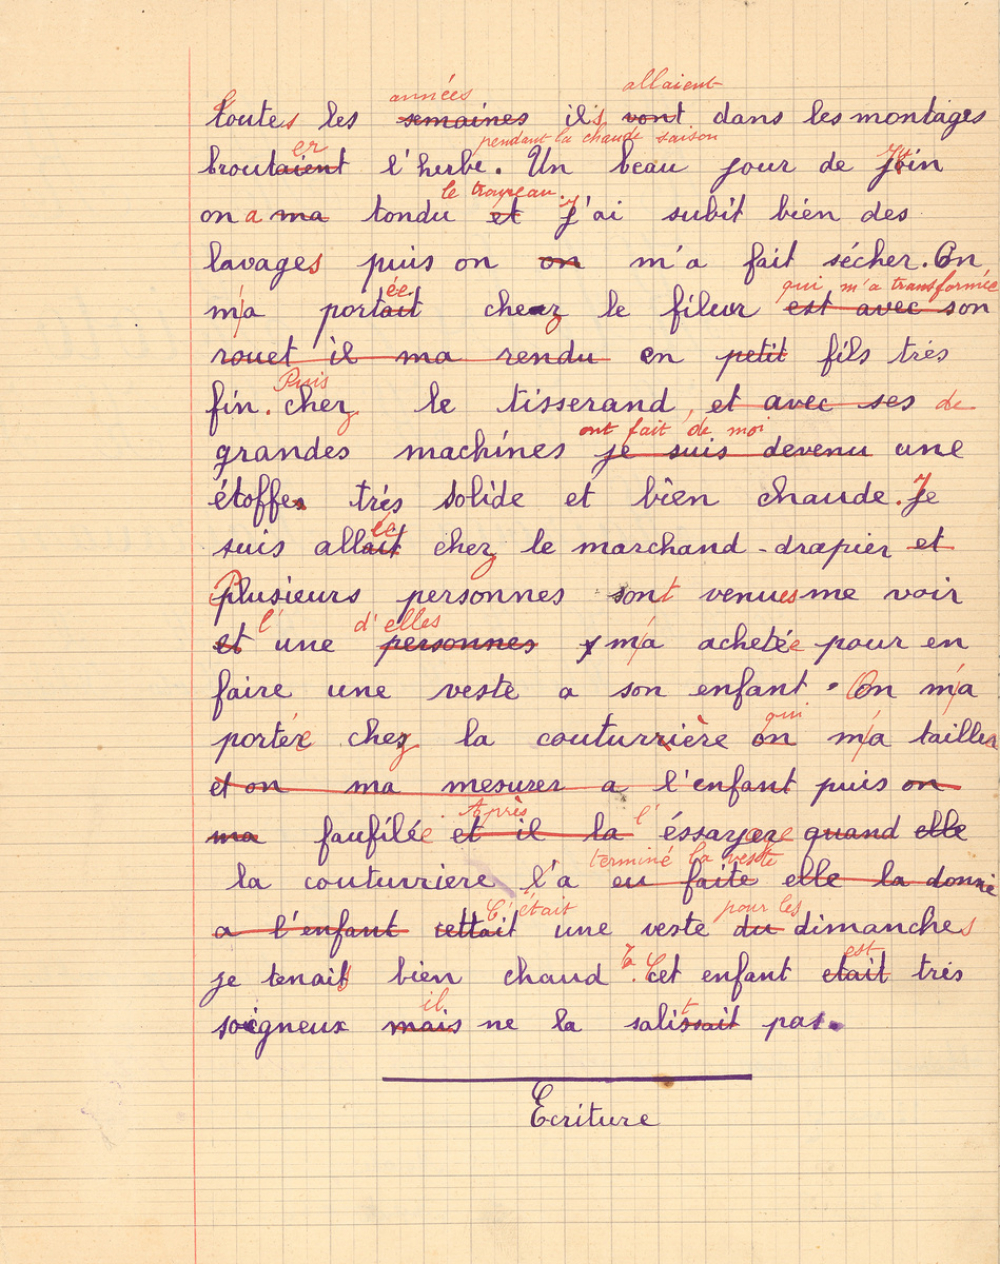 années allaient
Toutes les semaines ils vont dans les montages
er pendant la chaude saison
broutaient l'herbe. Un beau jour de Juin
le troupeau.
on a ma tondu et J'ai subit bien des
lavages puis on on m'a fait sécher. On
ée qui m'a transformée
m'a portait chez le fileur est avec son
rouet il ma rendu en petit fils très
Puis
fin. chez le tisserand, et avec ses de
ont fait de moi
grandes machines je suis devenu une
étoffe très solide et bien chaude. Je
ée
suis allait chez le marchand-drapier et
Plusieurs personnes sont venues me voir
l' d'elles
et une personnes m'a achetée pour en
faire une veste a son enfant. On m'a
qui
portée chez la couturrière on m'a tailler
et on ma mesurer a l'enfant puis on
Après l'
ma faufilée et il la éssayere quand elle
terminé la veste
la couturriere l'a eu faite elle la donnè
C'était pour les
a l'enfant cettait une veste du dimanches
est
je tenait bien chaud. Cet enfant etait très
il t
soigneux mais ne la salissait pas.
Ecriture